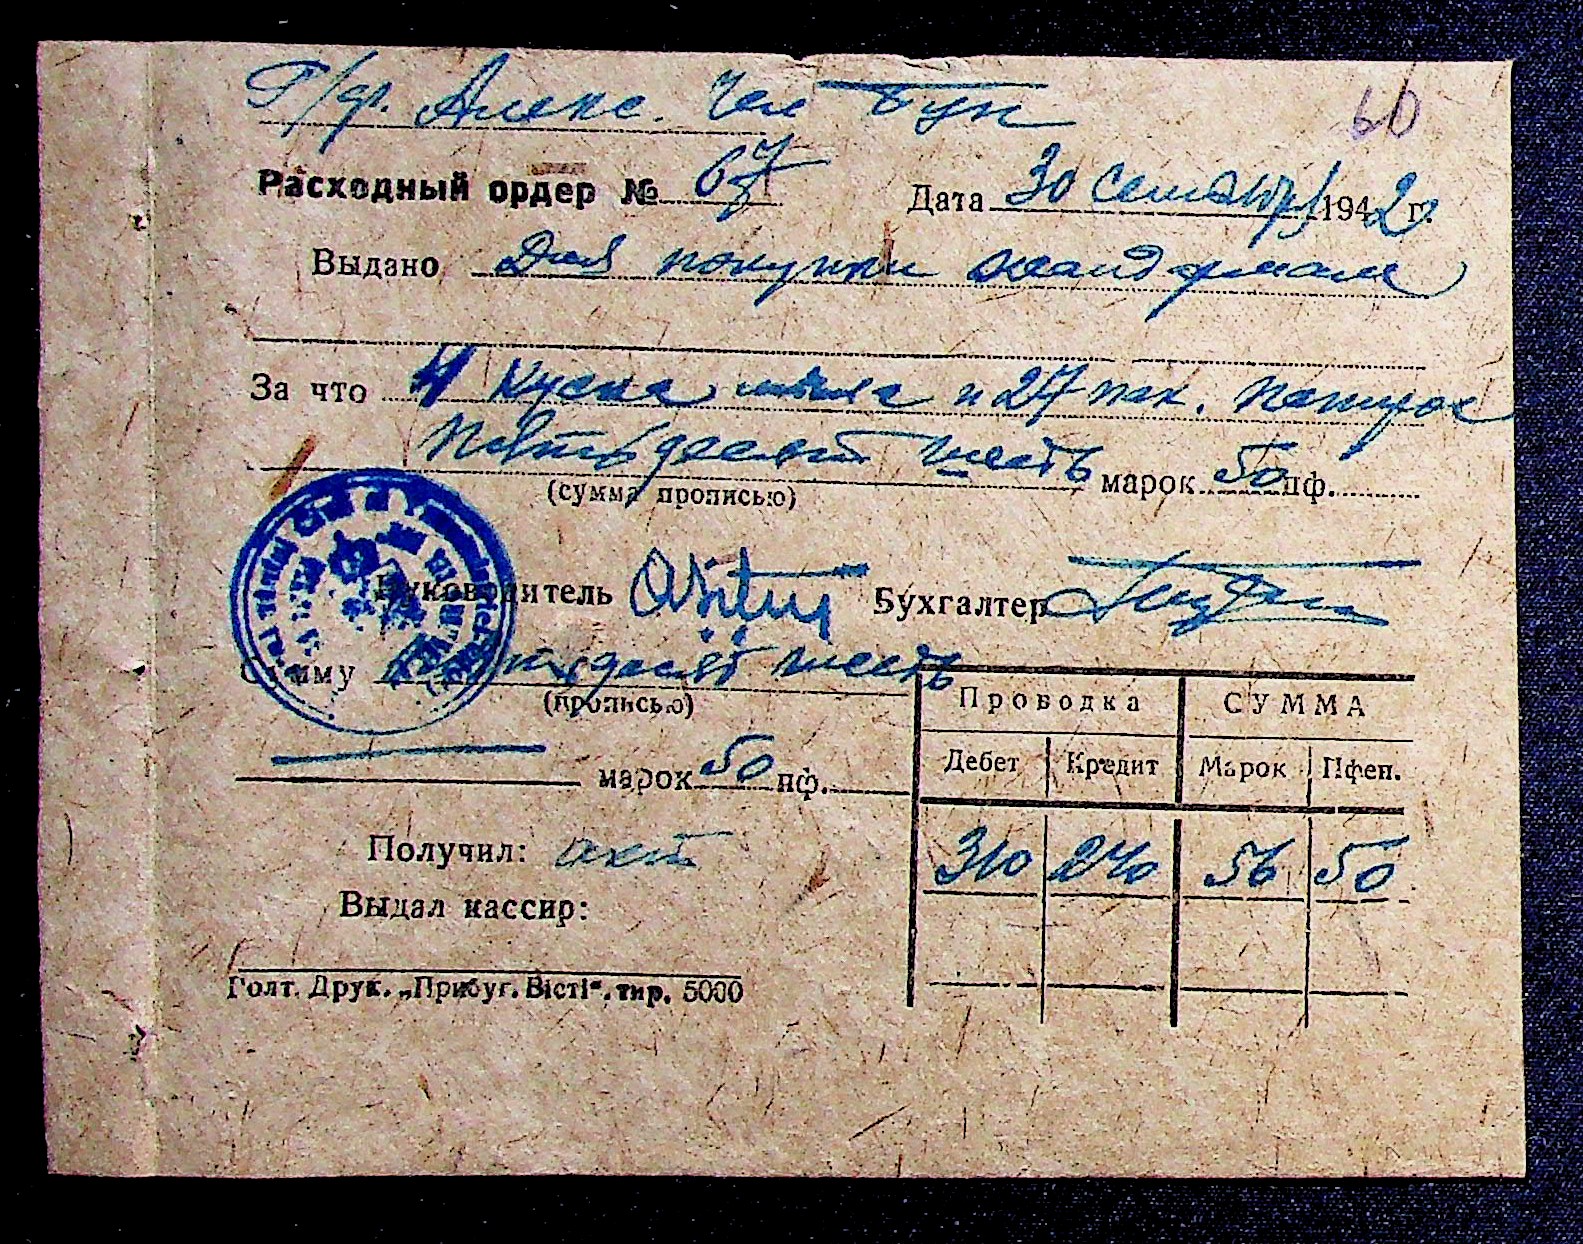 Г/др. Алекс. Чел Бук
60
Расходный ордер № 67 Дата 30 Сентября 1942 г.
Выдано Для покупки жандармам
За что 4 куска мыла и 27 пак. папирос
Пятьдесят шесть марок 50 пф.
(сумма прописью)
Руководитель Бухгалтер
Сумму Пятьдесят шесть
(прописью)
марок 50 пф.
Проводка СУММА
Дебет Кредит Марок Пфен.
310 240 56 50
Получил: акт
Выдал кассир:
Голт. Друк. „Прибуг. Вісті“, тир. 5000